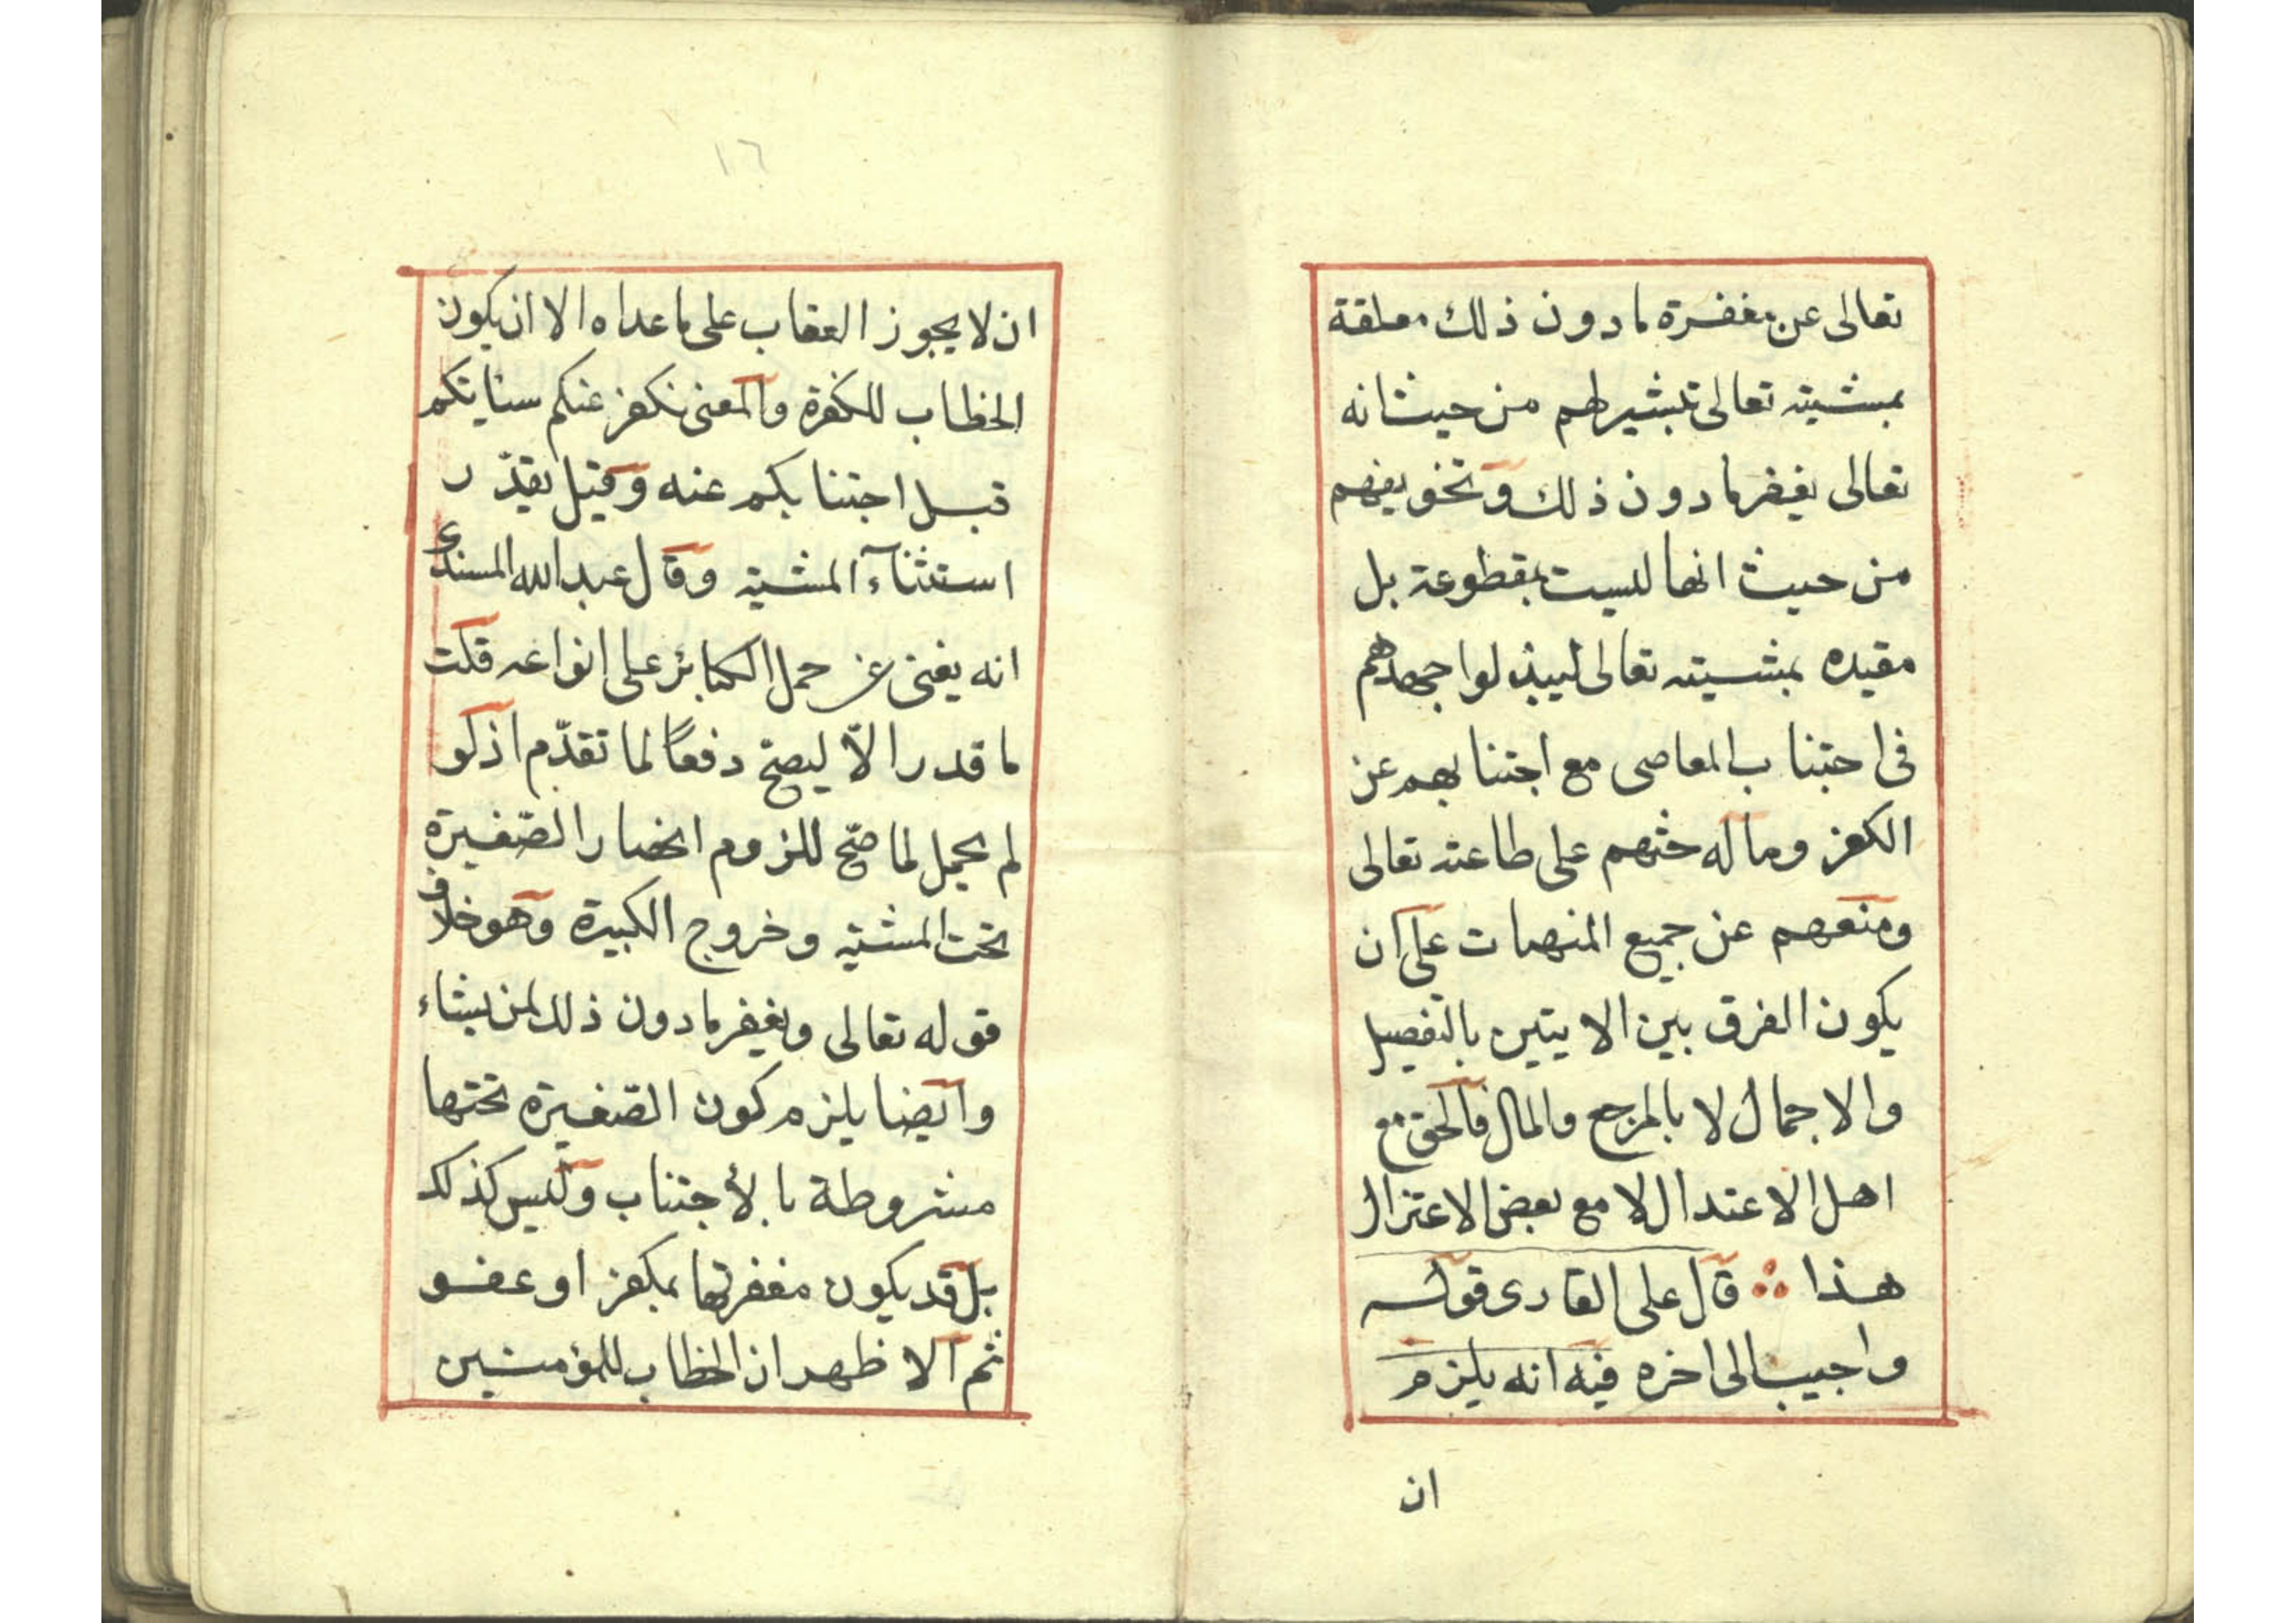 تعالى عن مغفرة ما دون ذلك معلقة
بمشيته تعالى تبشير لهم من حيث انه
تعالى يغفر ما دون ذلك وتخويفهم
من حيث انها ليست بمقطوعة بل
مقيده بمشيته تعالى ليبذلوا جهدهم
فى اجتناب المعاصى مع اجتنابهم عن
الكفر وما له حثهم على طاعته تعالى
ومنعهم عن جميع المنهيات على ان
يكون الفرق بين الايتين بالتفصيل
والاجمال لا بالمرجع والمال فالحق مع
اهل الاعتدال لا مع بعض الاعتزال
هذا ∴ قال على القارى قوله
واجيب الى اخره فيه انه يلزم
ان
١٦
ان لا يجوز العقاب على ما عداه الا ان يكون
الخطاب للكفرة والمعنى نكفر عنكم سئاتكم
قبل اجتنابكم عنه وقيل يقدّر
استثناء المشية وقال عبد الله السندى
انه يغنى عن حمل الكبائر على انواعه قلت
ما قدر الا ليصح دفعًا لما تقدّم اذ لو
لم يحمل لما صحّ للزوم انحصار الصّغيرة
تحت المشية وخروج الكبيرة وهو خلاف
قوله تعالى ويغفر ما دون ذلك لمن يشاء
وايضا يلزم كون الصّغيرة تحتها
مشروطة بالأجتناب وليس كذلك
بل قد يكون مغفرتها بمكفر او عفو
ثم الاظهر ان الخطاب للمؤمنين